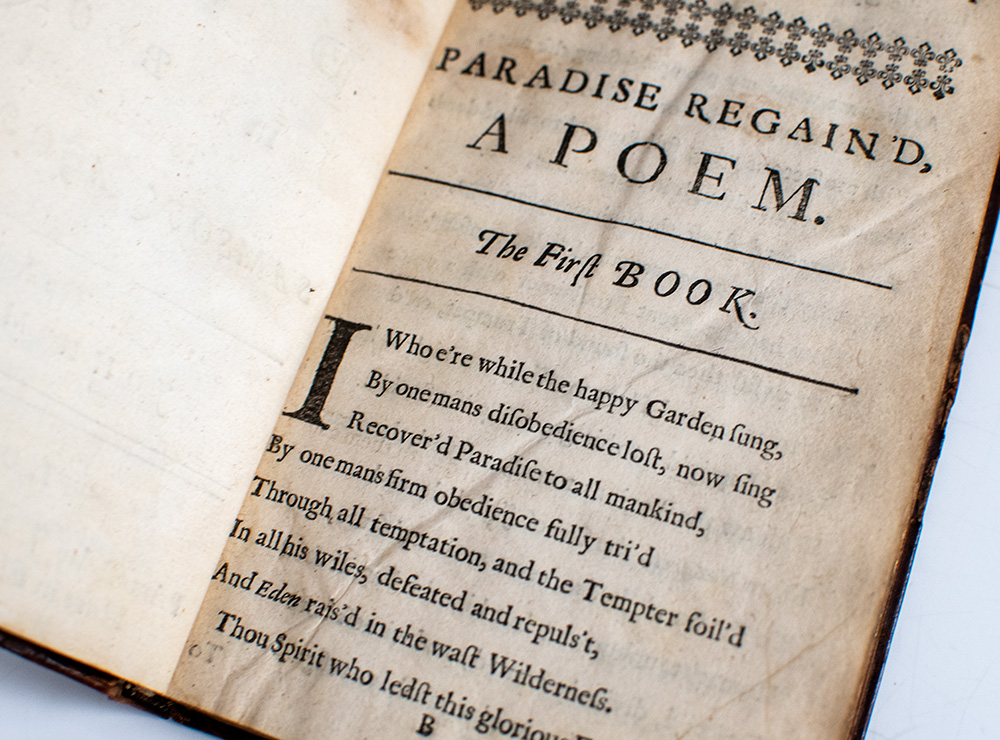 PARADISE REGAIN'D,
A POEM.
The Firſt BOOK.
I Who e're while the happy Garden ſung,
By one mans diſobedience loſt, now ſing
Recover'd Paradiſe to all mankind,
By one mans firm obedience fully tri'd
Through all temptation, and the Tempter foil'd
In all his wiles, defeated and repuls't,
And Eden rais'd in the waſt Wilderneſs.
Thou Spirit who ledſt this glorious
B